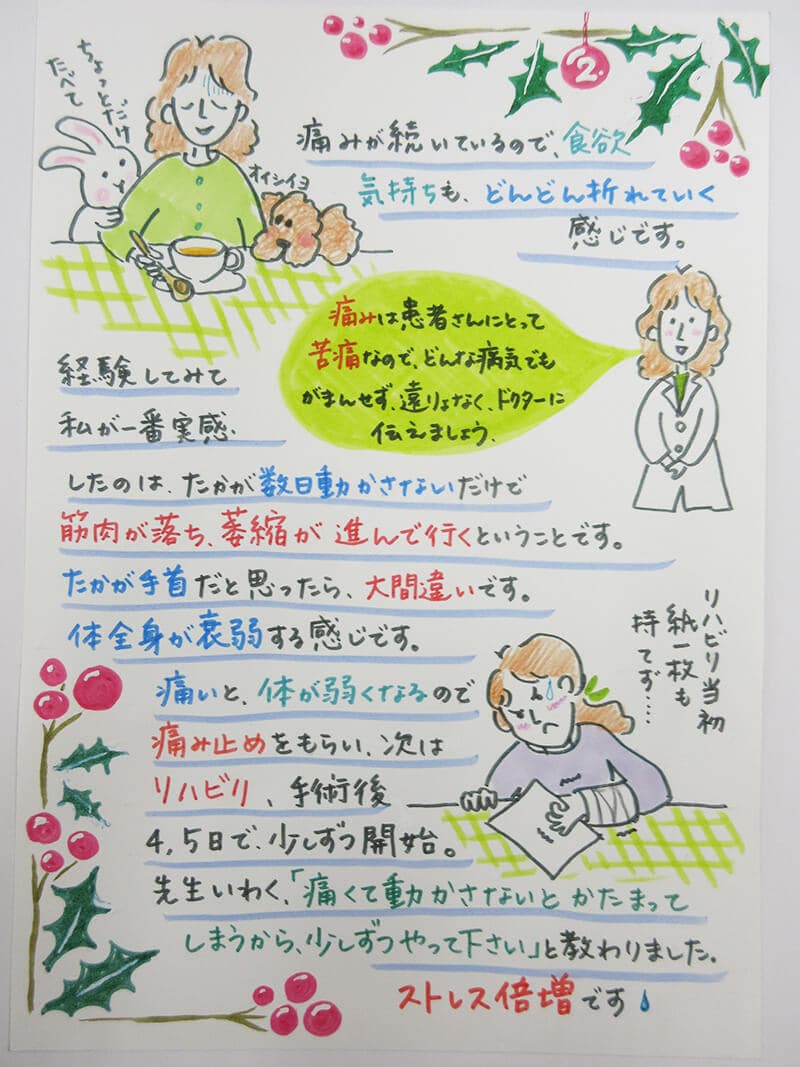 2.
ちょっとだけ
たべて
オイシイヨ
痛みが続いているので、食欲
気持ちも、どんどん折れていく
感じです。
痛みは患者さんにとって
苦痛なので、どんな病気でも
がまんせず、遠りょなく、ドクターに
伝えましょう。
経験してみて
私が一番実感
したのは、たかが数日動かさないだけで
筋肉が落ち、萎縮が進んで行くということです。
たかが手首だと思ったら、大間違いです。
体全身が衰弱する感じです。
リハビリ当初
紙一枚も
持てず……
痛いと、体が弱くなるので
痛み止めをもらい、次は
リハビリ、手術後
4,5日で、少しずつ開始。
先生いわく、「痛くて動かさないとかたまって
しまうから、少しずつやって下さい」と教わりました。
ストレス倍増です